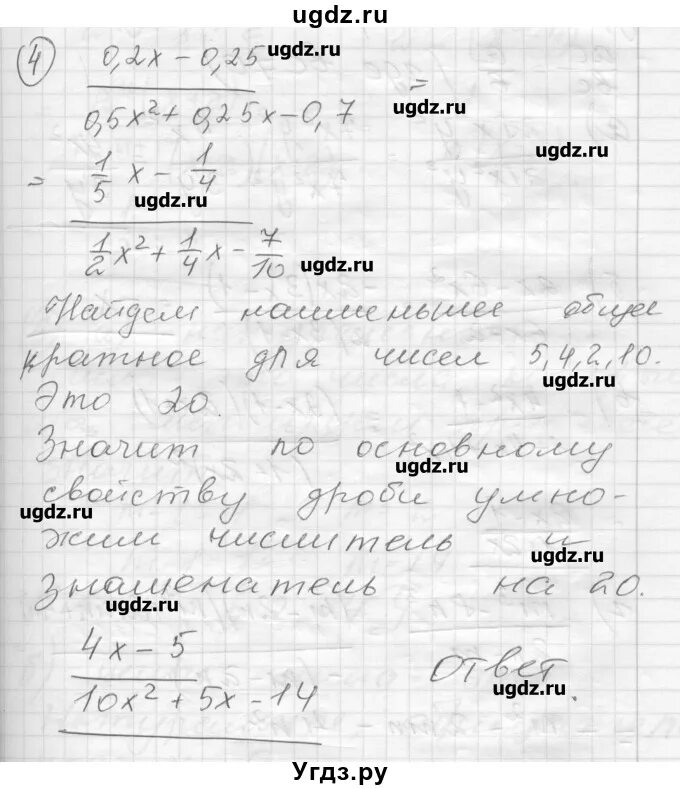 ugdz.ru
4 0,2x - 0,25 ugdz.ru
= ugdz.ru
0,5x² + 0,25x - 0,7
ugdz.ru
= 1/5 x - 1/4
ugdz.ru
1/2 x² + 1/4 x - 7/10 ugdz.ru
Найдем наименьшее общее
кратное для чисел 5,4,2,10.
ugdz.ru
Это 20.
Значит по основному
ugdz.ru
свойству дроби умно-
ugdz.ru
жим числитель и
ugdz.ru
знаменатель на 20.
ugdz.ru
4x - 5
Ответ.
ugdz.ru
10x² + 5x - 14
Угдз.ру